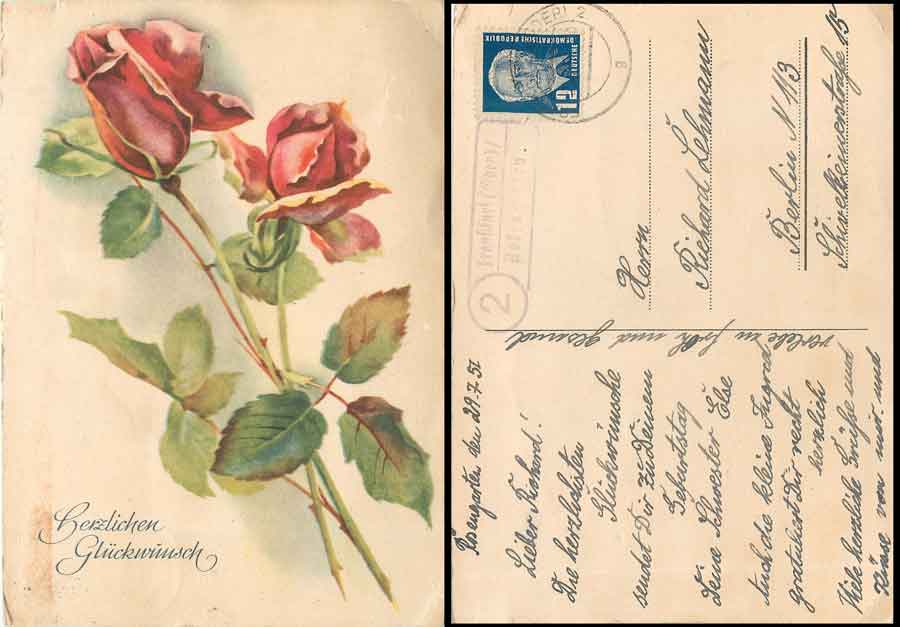 Herzlichen
Glückwunsch
DEUTSCHE
DEMOKRATISCHE REPUBLIK
12
2
Frankfurt (Oder) 2
Rosengarten
Herrn
Richard Lehmann
Berlin N 113
Schivelbeinerstraße 15
Rosengarten den 29.7.51
Lieber Richard!
Die herzlichsten
Glückwünsche
sendet Dir zu Deinem
Geburtstag
Deine Schwester Else
Auch die kleine Jugend
gratuliert Dir recht
herzlich
Viele herzliche Grüße und
Küsse von mir und
verlebe ihn froh und gesund